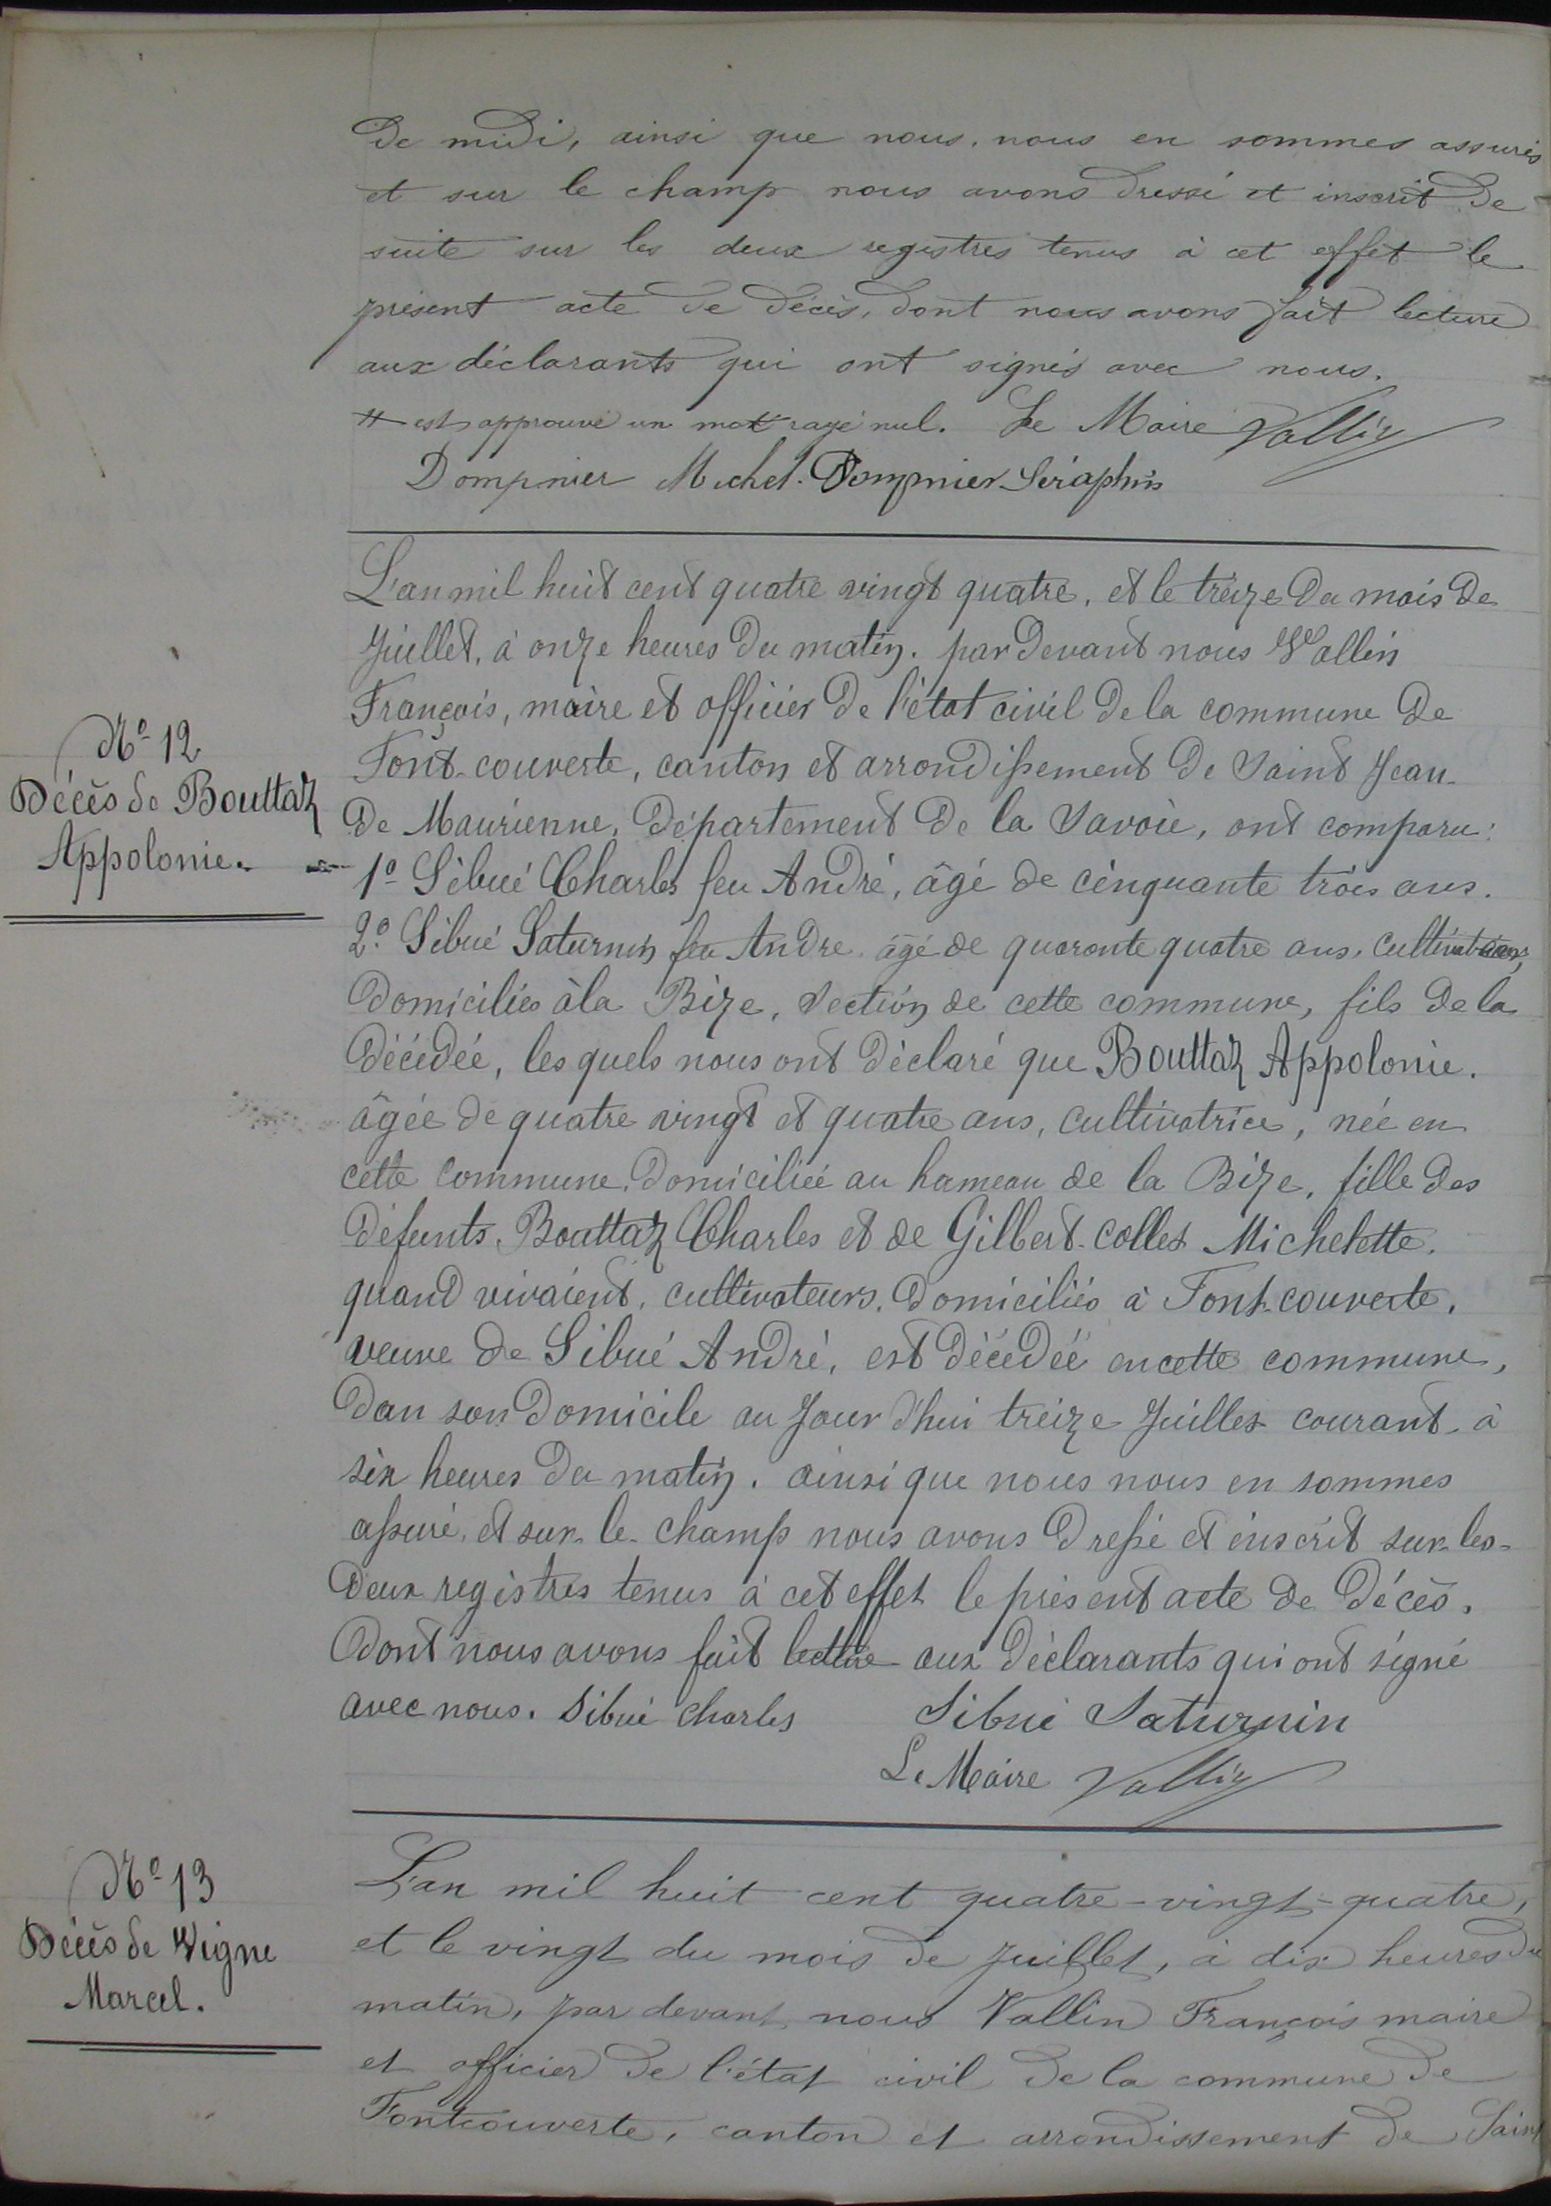 de midi, ainsi que nous nous en sommes assurés
et sur le champ nous avons dressé et inscrit de
suite sur les deux registres tenus à cet effet le
présent acte de décès, dont nous avons fait lecture
aux déclarants qui ont signés avec nous.
est approuvé un mot rayé nul. Le Maire Vallin
Dompnier Michel. Dompnier Séraphin
L'an mil huit cent quatre vingt quatre, et le treize du mois de
Juillet, à onze heures du matin. par devant nous Vallin
François, maire et officier de l'état civil de la commune de
N° 12
Font-couverte, canton et arrondissement de Saint Jean-
Décès de Bouttaz
de Maurienne, département de la Savoie, ont comparu:
Appolonie.
1° Sibué Charles feu André, âgé de cinquante trois ans.
2° Sibué Saturnin feu André âgé de quarante quatre ans, cultivateurs,
domiciliés à la Bize, Section de cette commune, fils de la
décédée, les quels nous ont déclaré que Bouttaz Appolonie.
âgée de quatre vingt et quatre ans, cultivatrice, née en
cette commune, domiciliée au hameau de la Bize, fille des
défunts, Bouttaz Charles et de Gilbert-collet Michelette.
quand vivaient, cultivateurs, domiciliés à Font-couverte,
veuve de Sibué André, est décédée en cette commune,
dan son domicile au Jour d'hui treize Juillet courant à
six heures du matin. ainsi que nous nous en sommes
assuré, et sur-le-champ nous avons dressé et inscrit sur les
deux registres tenus à cet effet le présent acte de décès,
dont nous avons fait lecture aux déclarants qui ont signé
avec nous. Sibué charles Sibué Saturnin
Le Maire Vallin
N° 13
L'an mil huit cent quatre-vingt-quatre,
Décès de Vigne
et le vingt du mois de Juillet, à dix heures du
Marcel.
matin, par devant nous Vallin François maire
et officier de l'état civil de la commune de
Fontcouverte, canton et arrondissement de Saint